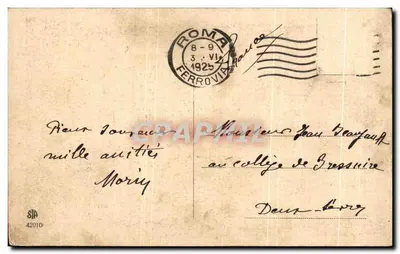 ROMA
8-9
3. VI
1925
FERROVIA
France
Pieux souvenir
mille amitiés
Monsieur Jean
au collège de Bressuire
Deux-Sèvres
42910